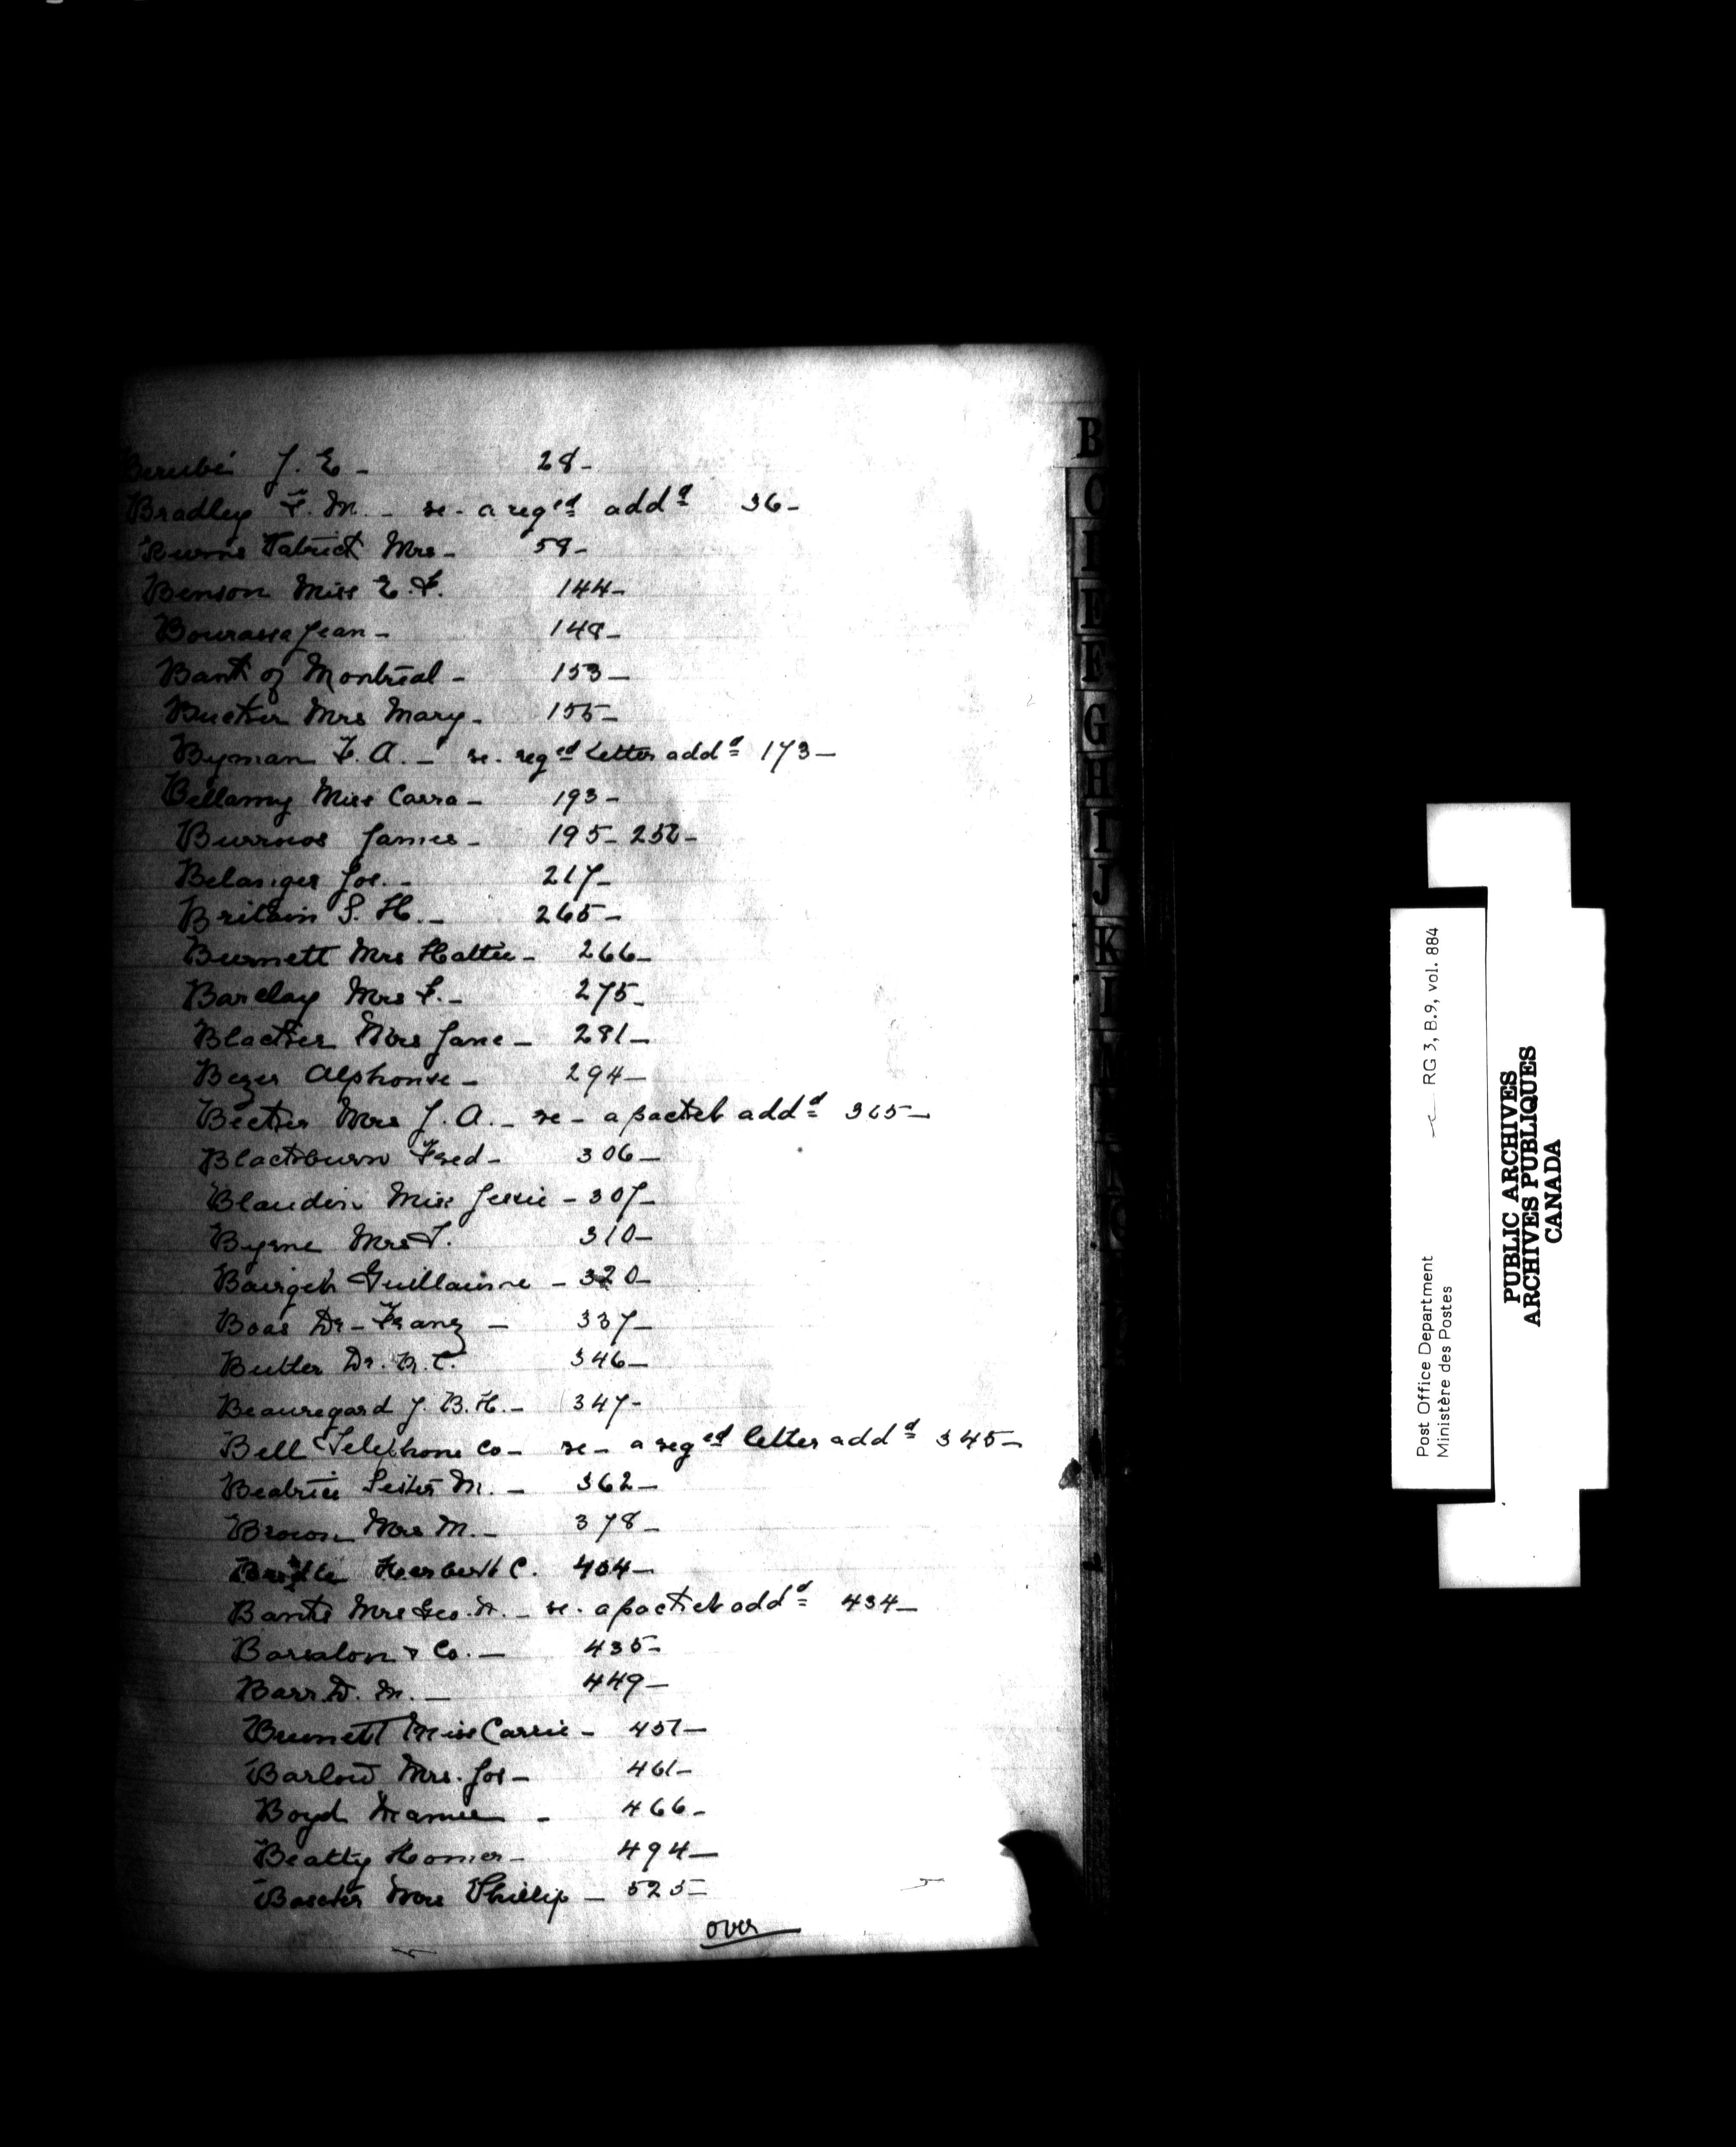 Berubé J. E. - 28-
Bradley F. M. - re - a reg'ed add'd 36-
Burns Patrick Mrs - 58-
Benson Miss E. F. 144-
Bourassa Jean - 148-
Bank of Montreal - 153-
Bucker Mrs Mary - 155-
Byman F. A. - re. reg'ed Letter add'd 173-
Bellamy Miss Carra - 193-
Burrows James - 195-
Belanger Jos. - 217-
Britain S. H. - 265-
Burnett Mrs Hattie - 266-
Barclay Mrs F. - 275-
Blacker Mrs Jane - 281-
Bezer Alphonse - 294-
Becker Mrs J. A. - re - a packet add'd
Blackburn Fred - 306-
Blaudin Miss Jessie - 307-
Byrne Mrs T. 310-
Guillaume - 320-
Boas Dr - Franz - 337-
Butler Dr. 346-
Beauregard J. B. H. - 347-
Bell Telephone Co - re - a reg'ed letter add'd 345-
Beatrice Sister M. - 362-
Brown Mrs M. - 378-
Herbert C. 404-
Banks Mrs Geo. - re. a packet add'd 434-
Barsalou & Co. - 435-
Barr D. M. - 449-
Burnett Miss Carrie - 457-
Barlow Mrs. Jos - 461-
Boyd Mamie - 466-
Beatty Homer - 494-
Mrs Phillip - 525-
over
B
C
D
E
F
G
H
I
J
K
L
M
Post Office Department
Ministère des Postes
RG 3, B.9, vol. 884
PUBLIC ARCHIVES
ARCHIVES PUBLIQUES
CANADA